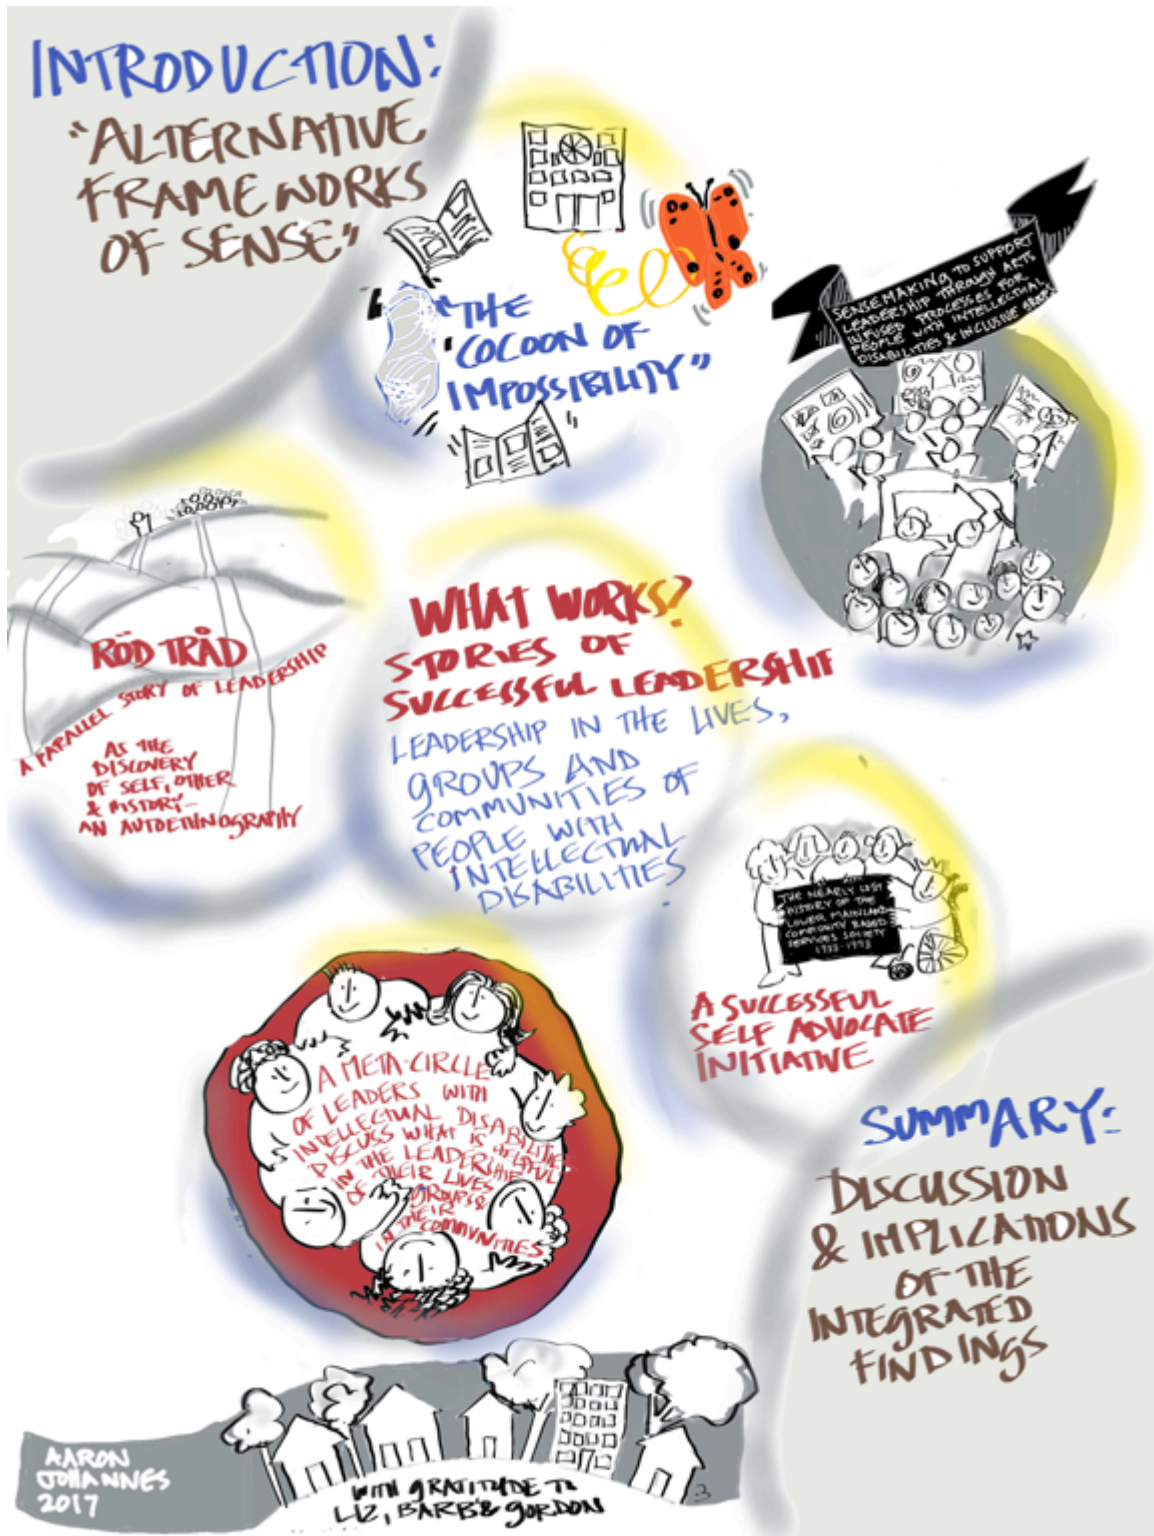 INTRODUCTION:
"ALTERNATIVE
FRAMEWORKS
OF SENSE"
"THE
'COCOON OF
IMPOSSIBILITY"
SENSEMAKING TO SUPPORT
LEADERSHIP THROUGH ARTS
INFUSED PROCESSES FOR
PEOPLE WITH INTELLECTUAL
DISABILITIES & INCLUSIVE
RÖD TRÅD
A PARALLEL STORY OF LEADERSHIP
AS THE
DISCOVERY
OF SELF, OTHER
& HISTORY-
AN AUTOETHNOGRAPHY
WHAT WORKS?
STORIES OF
SUCCESSFUL LEADERSHIP
LEADERSHIP IN THE LIVES,
GROUPS AND
COMMUNITIES OF
PEOPLE WITH
INTELLECTUAL
DISABILITIES.
THE NEARLY LOST
HISTORY OF THE
LOWER MAINLAND
COMMUNITY BASED
SERVICES SOCIETY
A SUCCESSFUL
SELF ADVOCATE
INITIATIVE
A META-CIRCLE
OF LEADERS WITH
INTELLECTUAL DISABILITIES
DISCUSS WHAT IS HELPFUL
IN THE LEADERSHIP
OF THEIR LIVES
GROUPS &
IN THEIR
COMMUNITIES
SUMMARY:
DISCUSSION
& IMPLICATIONS
OF THE
INTEGRATED
FINDINGS
AARON
JOHANNES
2017
WITH GRATITUDE TO
LIZ, BARB & GORDON
3